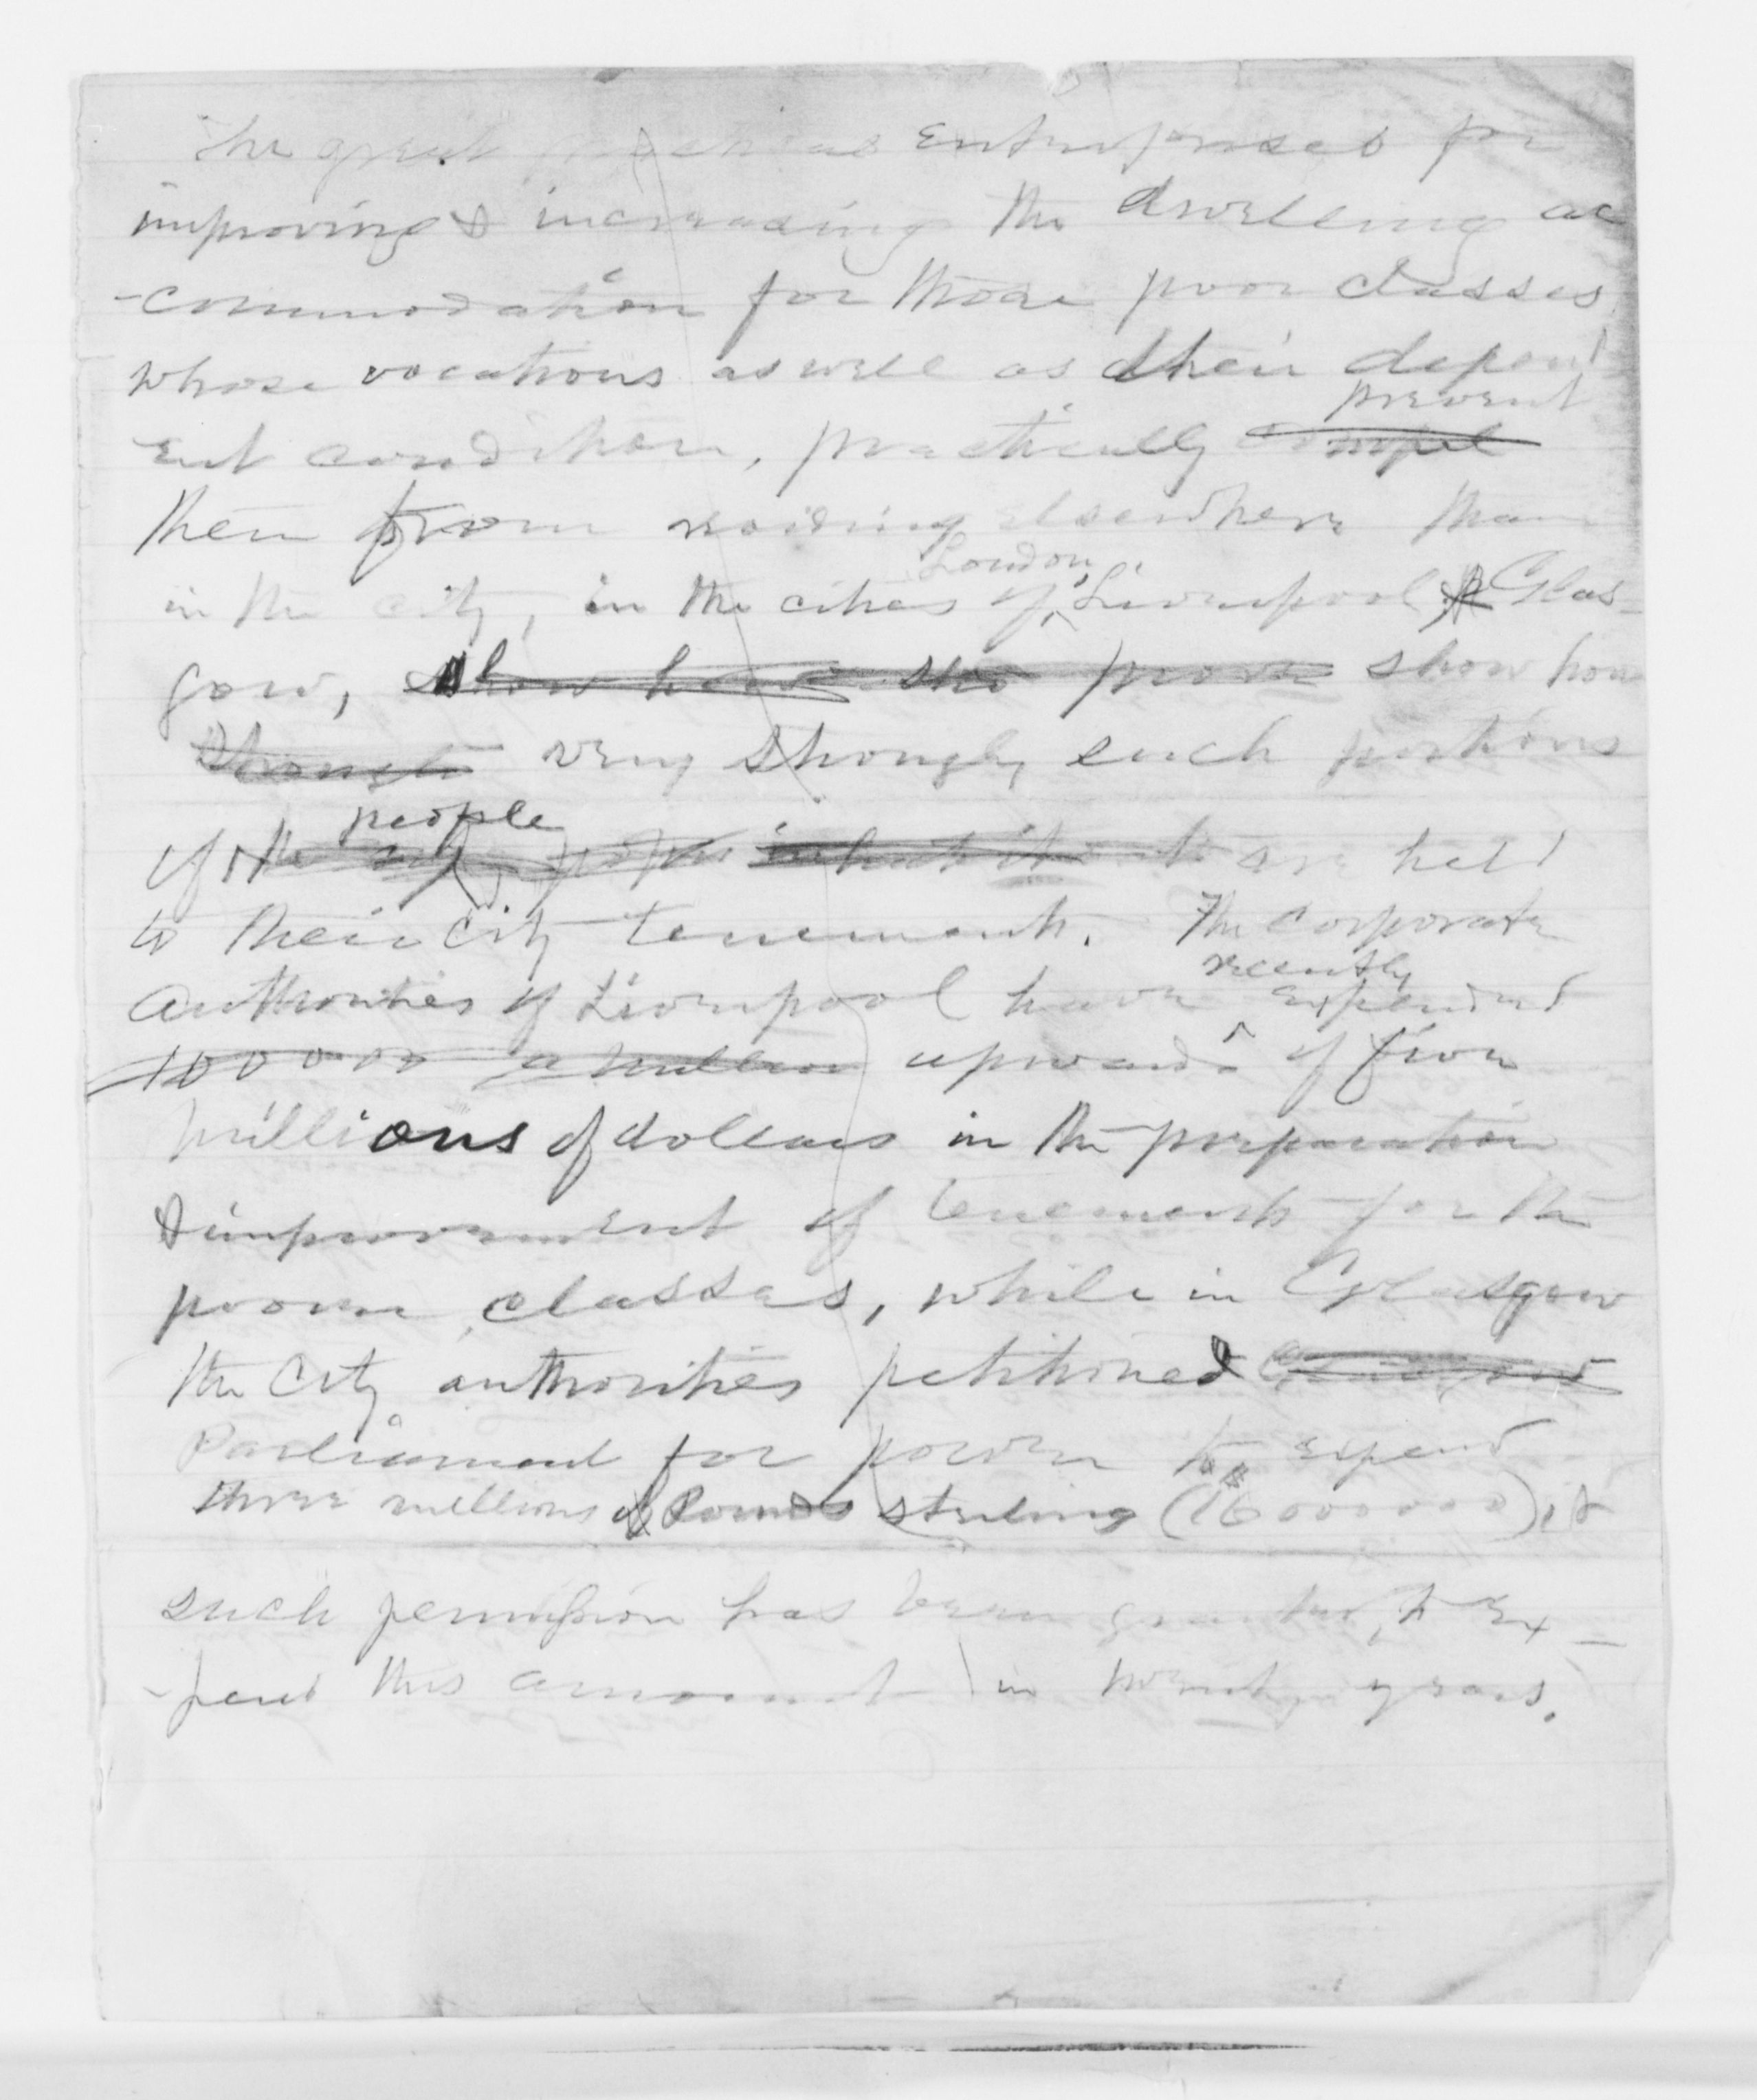 The great practical Enterprises for
improving & increasing the dwelling ac
-commodation for those poor classes
whose vocations as well as their depend
prevent
ent condition, practically compel
them from residing elsewhere than
London
in the city, in the cities of Liverpool & Glas-
gow, show how the prove show how
strongly very strongly such portions
people
of the city poor inhabitants are held
to their city tenements. The corporate
recently
authorities of Liverpool have expended
100000 a million upwards of five
millions of dollars in the preparation
& improvement of tenements for the
poorer classes, while in Glasgow
the city authorities petitioned
Parliament for power to expend
three millions of Pounds sterling ($16000000) &
such permission has been granted, to Ex-
-pend this amount in twenty years.